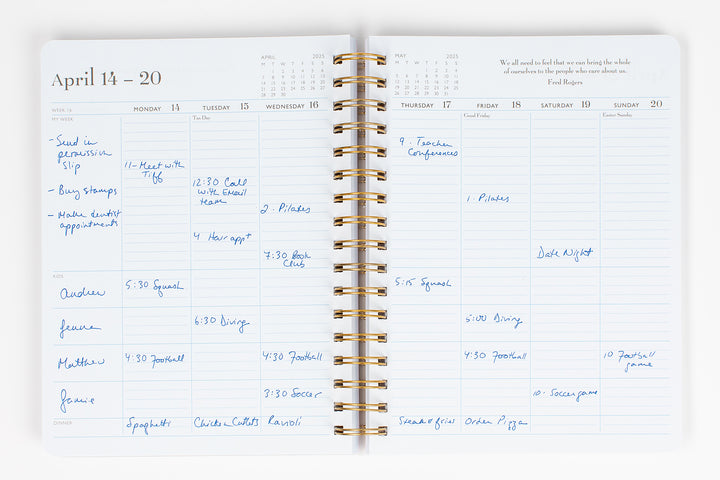 April 14 – 20
APRIL 2025
MAY 2025
We all need to feel that we can bring the whole
of ourselves to the people who care about us.
Fred Rogers
WEEK 16
MONDAY 14
TUESDAY 15
WEDNESDAY 16
THURSDAY 17
FRIDAY 18
SATURDAY 19
SUNDAY 20
MY WEEK
Tax Day
Good Friday
Easter Sunday
- Send in
permission
slip
- Buy stamps
- Make dentist
appointments
11- Meet with
Tiff
12:30 Call
with Email
team
4 Hair appt
2 · Pilates
7:30 Book
Club
9 · Teacher
Conferences
1 · Pilates
Date Night
KIDS
Andrew
5:30 Squash
5:15 Squash
6:30 Diving
5:00 Diving
Matthew
4:30 Football
4:30 Football
4:30 Football
10 Football
game
Jamie
3:30 Soccer
10 · Soccer game
DINNER
Spaghetti
Chicken Cutlets
Ravioli
Steak & fries
Order Pizza